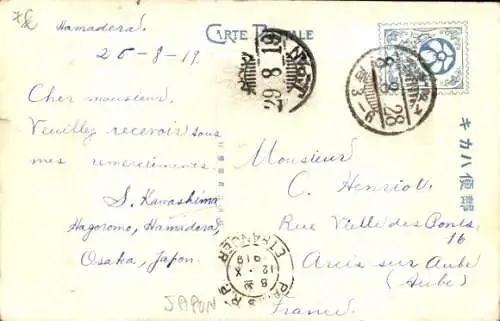 Hamadera.
26-8-19.
Cher monsieur,
Veuillez recevoir sous
mes remerciements.
S. Kawashima
Hagoromo, Hamadera,
Osaka, Japon.
JAPON
CARTE POSTALE
29 8 19
8 8 28
3-9
キカハ便郵
Monsieur
C. Henriot.
Rue Vieille des Ponts
16
Arcis sur Aube
(Aube)
France.
PARIS R.P.
ETRANGER